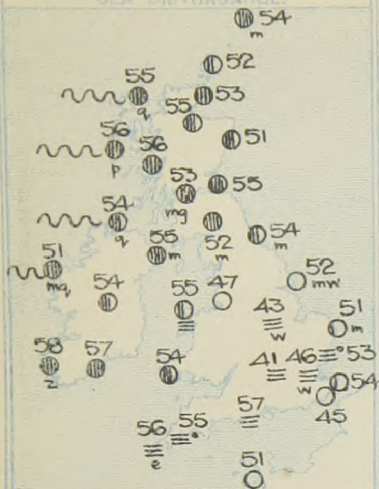 54
m
52
55
q
53
55
56
p
56
51
53
mg
55
54
q
52
m
54
m
55
m
51
mq
54
55
47
52
mw
43
w
51
m
58
z
57
54
41
46
w
53
54
45
57
56
e
55
51